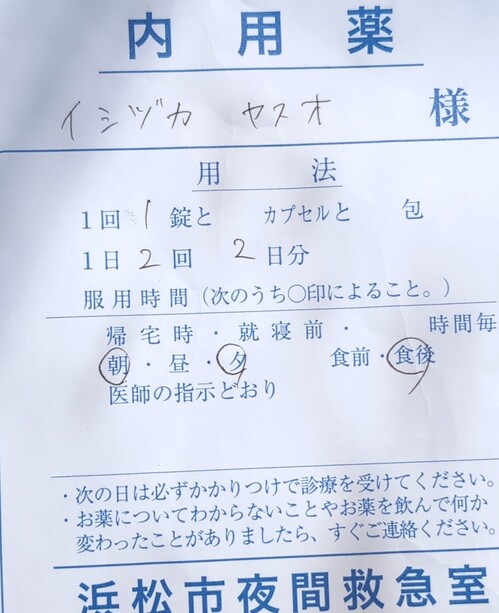 内用薬
イシヅカ ヤスオ 様
用法
1回 1 錠と カプセルと 包
1日 2 回 2 日分
服用時間（次のうち○印によること。）
帰宅時・就寝前・ 時間毎
朝・昼・夕 食前・食後
医師の指示どおり
・次の日は必ずかかりつけで診療を受けてください。
・お薬についてわからないことやお薬を飲んで何か
変わったことがありましたら、すぐご連絡ください。
浜松市夜間救急室